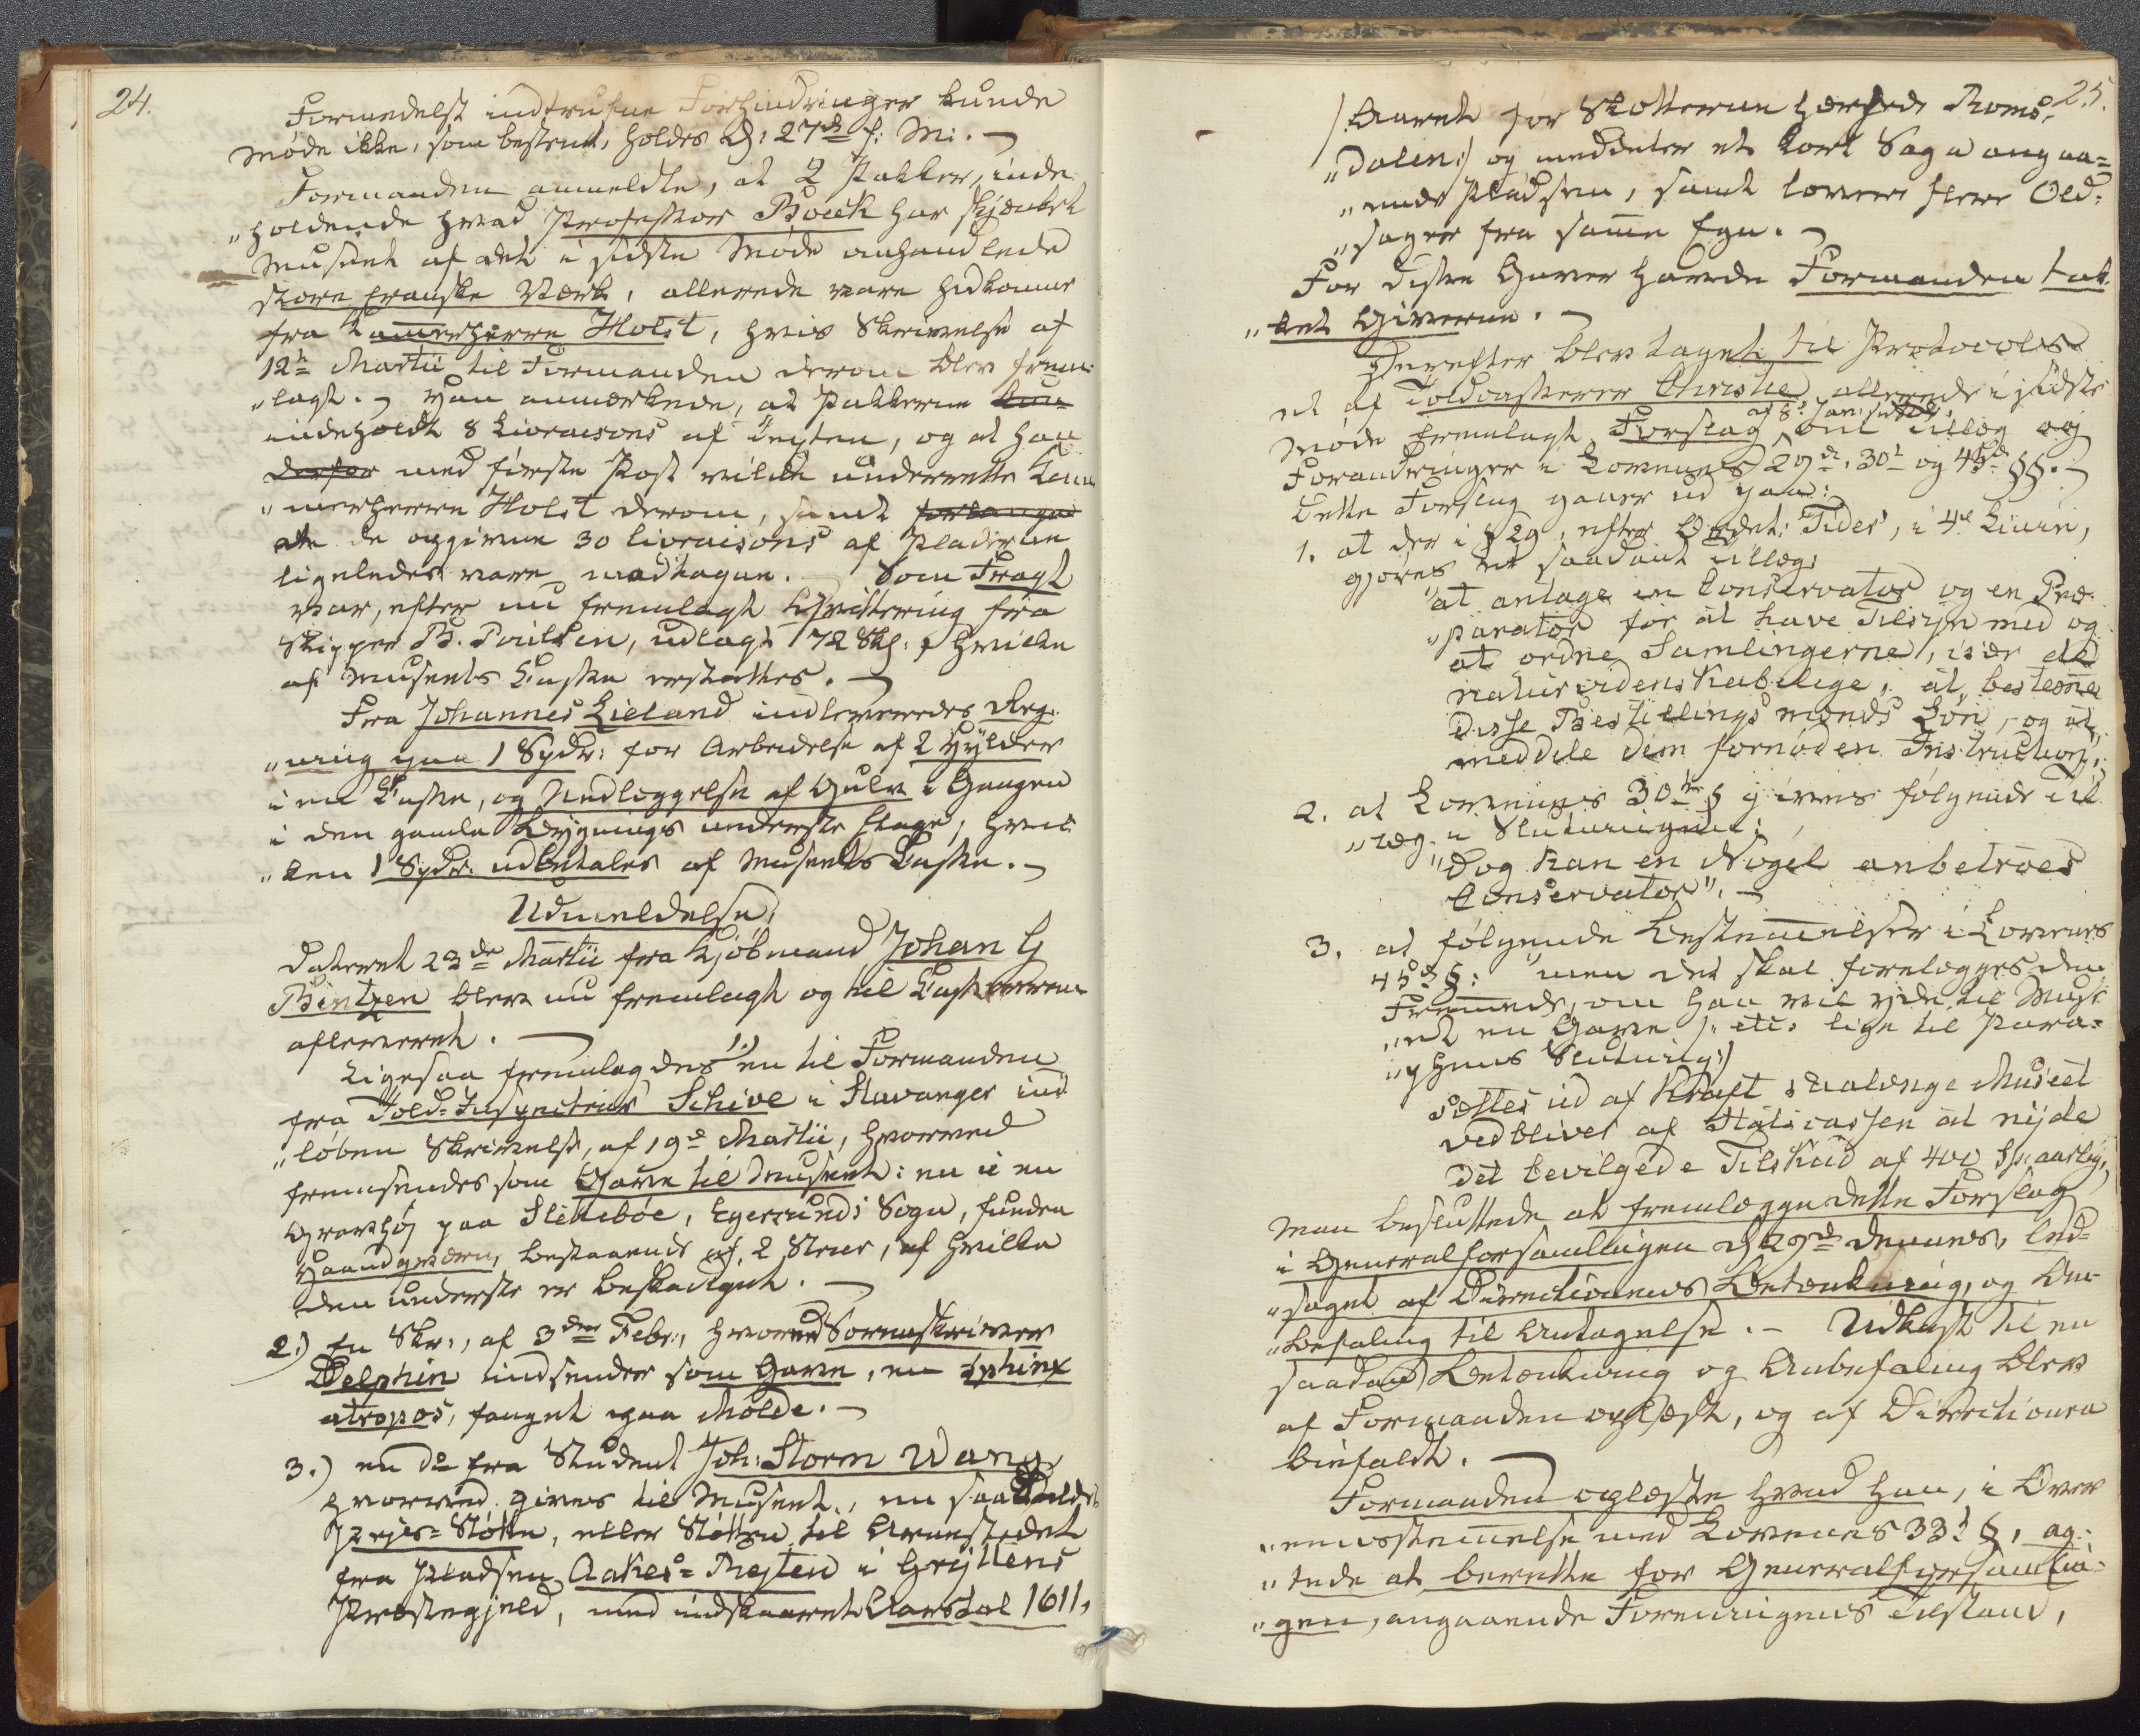 24.
Formedelst indtrufne Forhindringer kunde
Møde ikke, som bestemt, holdes d: 27de f: M:. —
Formanden anmeldte, at 2 Pakker, inde„
„holdende hvad Professor Boeck har skjænket
Museet af det i sidste Møde anhandlede
store franske Værk, allerede vare hidkomne
fra Kammerherre Holst, hvis Skrivelse af
12te Martii til Formanden derom blev frem„
„lagt. – Han anmærkede, at Pakkerne kun
indeholdt 8 Livraisons af Texten, og at han
derfor med første Post vilde underrette Kam
„merherre Holst derom, samt forlange
at de opgivne 30 livraisons af Pladerne
ligeledes vare modtagne. — Som Fragt
var, efter nu fremlagt Qvittering fra
Skipper B. Poulsen, udlagt 72 Skl:, hvilke
af Museets Kasse erstattes. —
Fra Johannes Lieland indleveredes Reg„
„ning paa 1 Spdr: for Arbeidelse af 2 Hylder
i en Kasse, og Nedlæggelse af Gulv i Gangen
i den gamle Bygnings underste Etage, hvil„
„ken 1 Spdr. udbetales af Museets Kasse. —
Udmeldelse,
dateret 23de Martii fra Kjøbmand Johan G
Bentzen blev nu fremlagt og til Kassereren
afleveret. —
Ligesaa fremlagdes 1.) en til Formanden
fra Told-Inspecteur Schive i Stavanger ind
„løben Skrivelse, af 19de Martii, hvorved
fremsendes som Gave til Museet: en i en
Gravhøj paa Slettebøe, Egersunds Sogn, funden
Haandqværn, bestaaende af 2 Stene, af hvilke
den underste er beskadiget. —
2.) En Skr:, af 3die Febr:, hvorved Sorenskriver
Delphin indsender som Gave, en Sphinx
atropos, fanget paa Molde. —
3.) en do fra Student Joh: Storm Wang,
hvorved gives til Museet, en saakaldet
Pejs-Støtte, eller Støtten til Arnestedet
fra Pladsen Aakes-Plejten i Gryttens
Præstegjeld, med indskaaret Aarstal 1611,
25.
/: Aaret før Skotterne hærjede Roms„
„dalen:/ og meddeler et kort Sagn angaa=
„ende Pladsen, samt lover flere Old„
„sager fra samme Egn. —
For disse Gaver havde Formanden tak
„ket Giverne. —
Derefter blev taget til Protocols
et af Toldcasserer Christie allerede i sidste
Møde fremlagt Forslag af 8: Jan: sidstl:, om Tillæg og
Forandringer i Lovenes 29de, 30te og 45de §§. —
Dette Forslag gaaer ud paa:
1. at der i § 29, efter Ordet: Tider, i 4de Linie,
gjøres et saadant Tillæg:
"at antage en Conservator og en Præ„
„parator for at have Tilsyn med og
at ordne Samlingerne, især de
naturvidenskabelige, at bestemme
disse Bestillingsmænds Løn, og at
meddele dem fornøden Instruction".
2. at Lovenes 30te § gives følgende Til
„læg i Slutningen:
"Dog kan en Nøgel anbetroes
Conservator". —
3. at følgende Bestemmelser i Lovenes
45de §: "men det skal forelægges den
Fremmede, om han vil yde til Muse
„et en Gave /: etc: lige til Para=
„graphens Slutning:/
sættes ud af Kraft saalænge Museet
vedbliver af Statscassen at nyde
det bevilgede Tilskud af 400 Sp: aarlig,
Man besluttede at fremlægge dette Forslag
i Generalforsamlingen d: 29de dennes, led=
„saget af Directionens Betænkning, og An-
„befaling til Antagelse. — Udkast til en
saadan Betænkning og Anbefaling blev
af Formanden oplæst, og af Directionen
bifaldt. —
Formanden oplæste hvad han, i Over
„ensstemmelse med Lovenes 33te §, ag„
„tede at berette for Generalforsamlin=
„gen, angaaende Foreningens Tilstand,